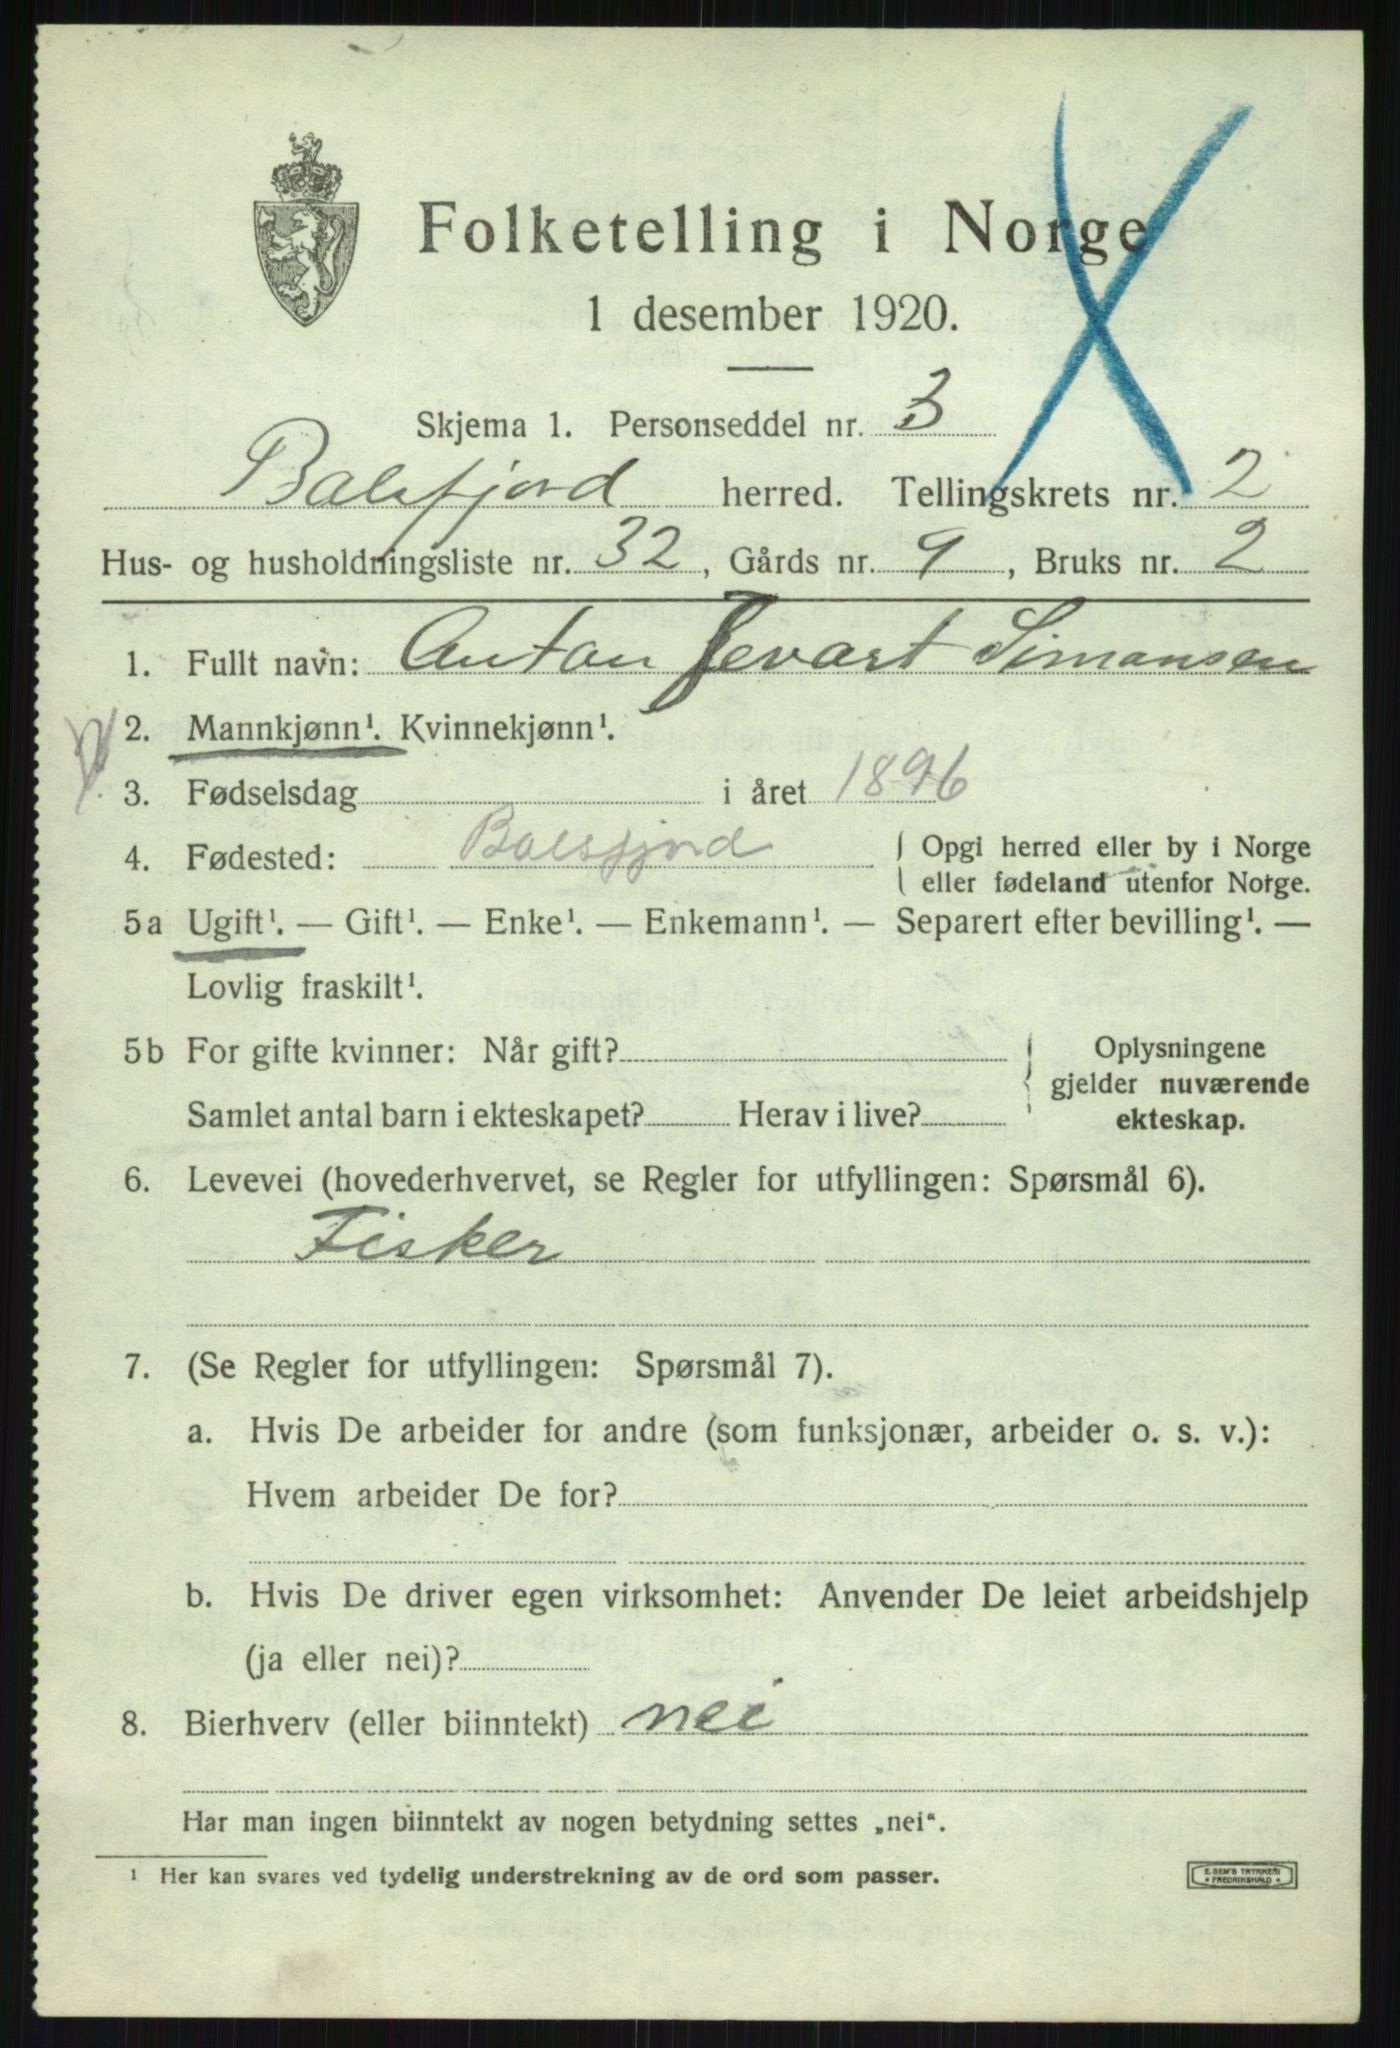 Folketelling i Norge
1 desember 1920.
Skjema 1. Personseddel nr. 3
Balsfjord herred. Tellingskrets nr. 2
Hus- og husholdningsliste nr. 32, Gårds nr. 9, Bruks nr. 2
1. Fullt navn: Anton Jevart Simonsen
2. Mannkjønn¹. Kvinnekjønn¹.
3. Fødselsdag i året 1896
4. Fødested: Balsfjord { Opgi herred eller by i Norge
eller fødeland utenfor Norge.
5a Ugift¹. — Gift¹. — Enke¹. — Enkemann¹. — Separert efter bevilling¹. —
Lovlig fraskilt¹.
5b For gifte kvinner: Når gift? { Oplysningene
gjelder nuværende
Samlet antal barn i ekteskapet? Herav i live? ekteskap.
6. Levevei (hovederhvervet, se Regler for utfyllingen: Spørsmål 6).
Fisker
7. (Se Regler for utfyllingen: Spørsmål 7).
a. Hvis De arbeider for andre (som funksjonær, arbeider o. s. v.):
Hvem arbeider De for?
b. Hvis De driver egen virksomhet: Anvender De leiet arbeidshjelp
(ja eller nei)?
8. Bierhverv (eller biinntekt) nei
Har man ingen biinntekt av nogen betydning settes „nei“.
¹ Her kan svares ved tydelig understrekning av de ord som passer.
E. SEM'S TRYKKERI
FREDRIKSHALD